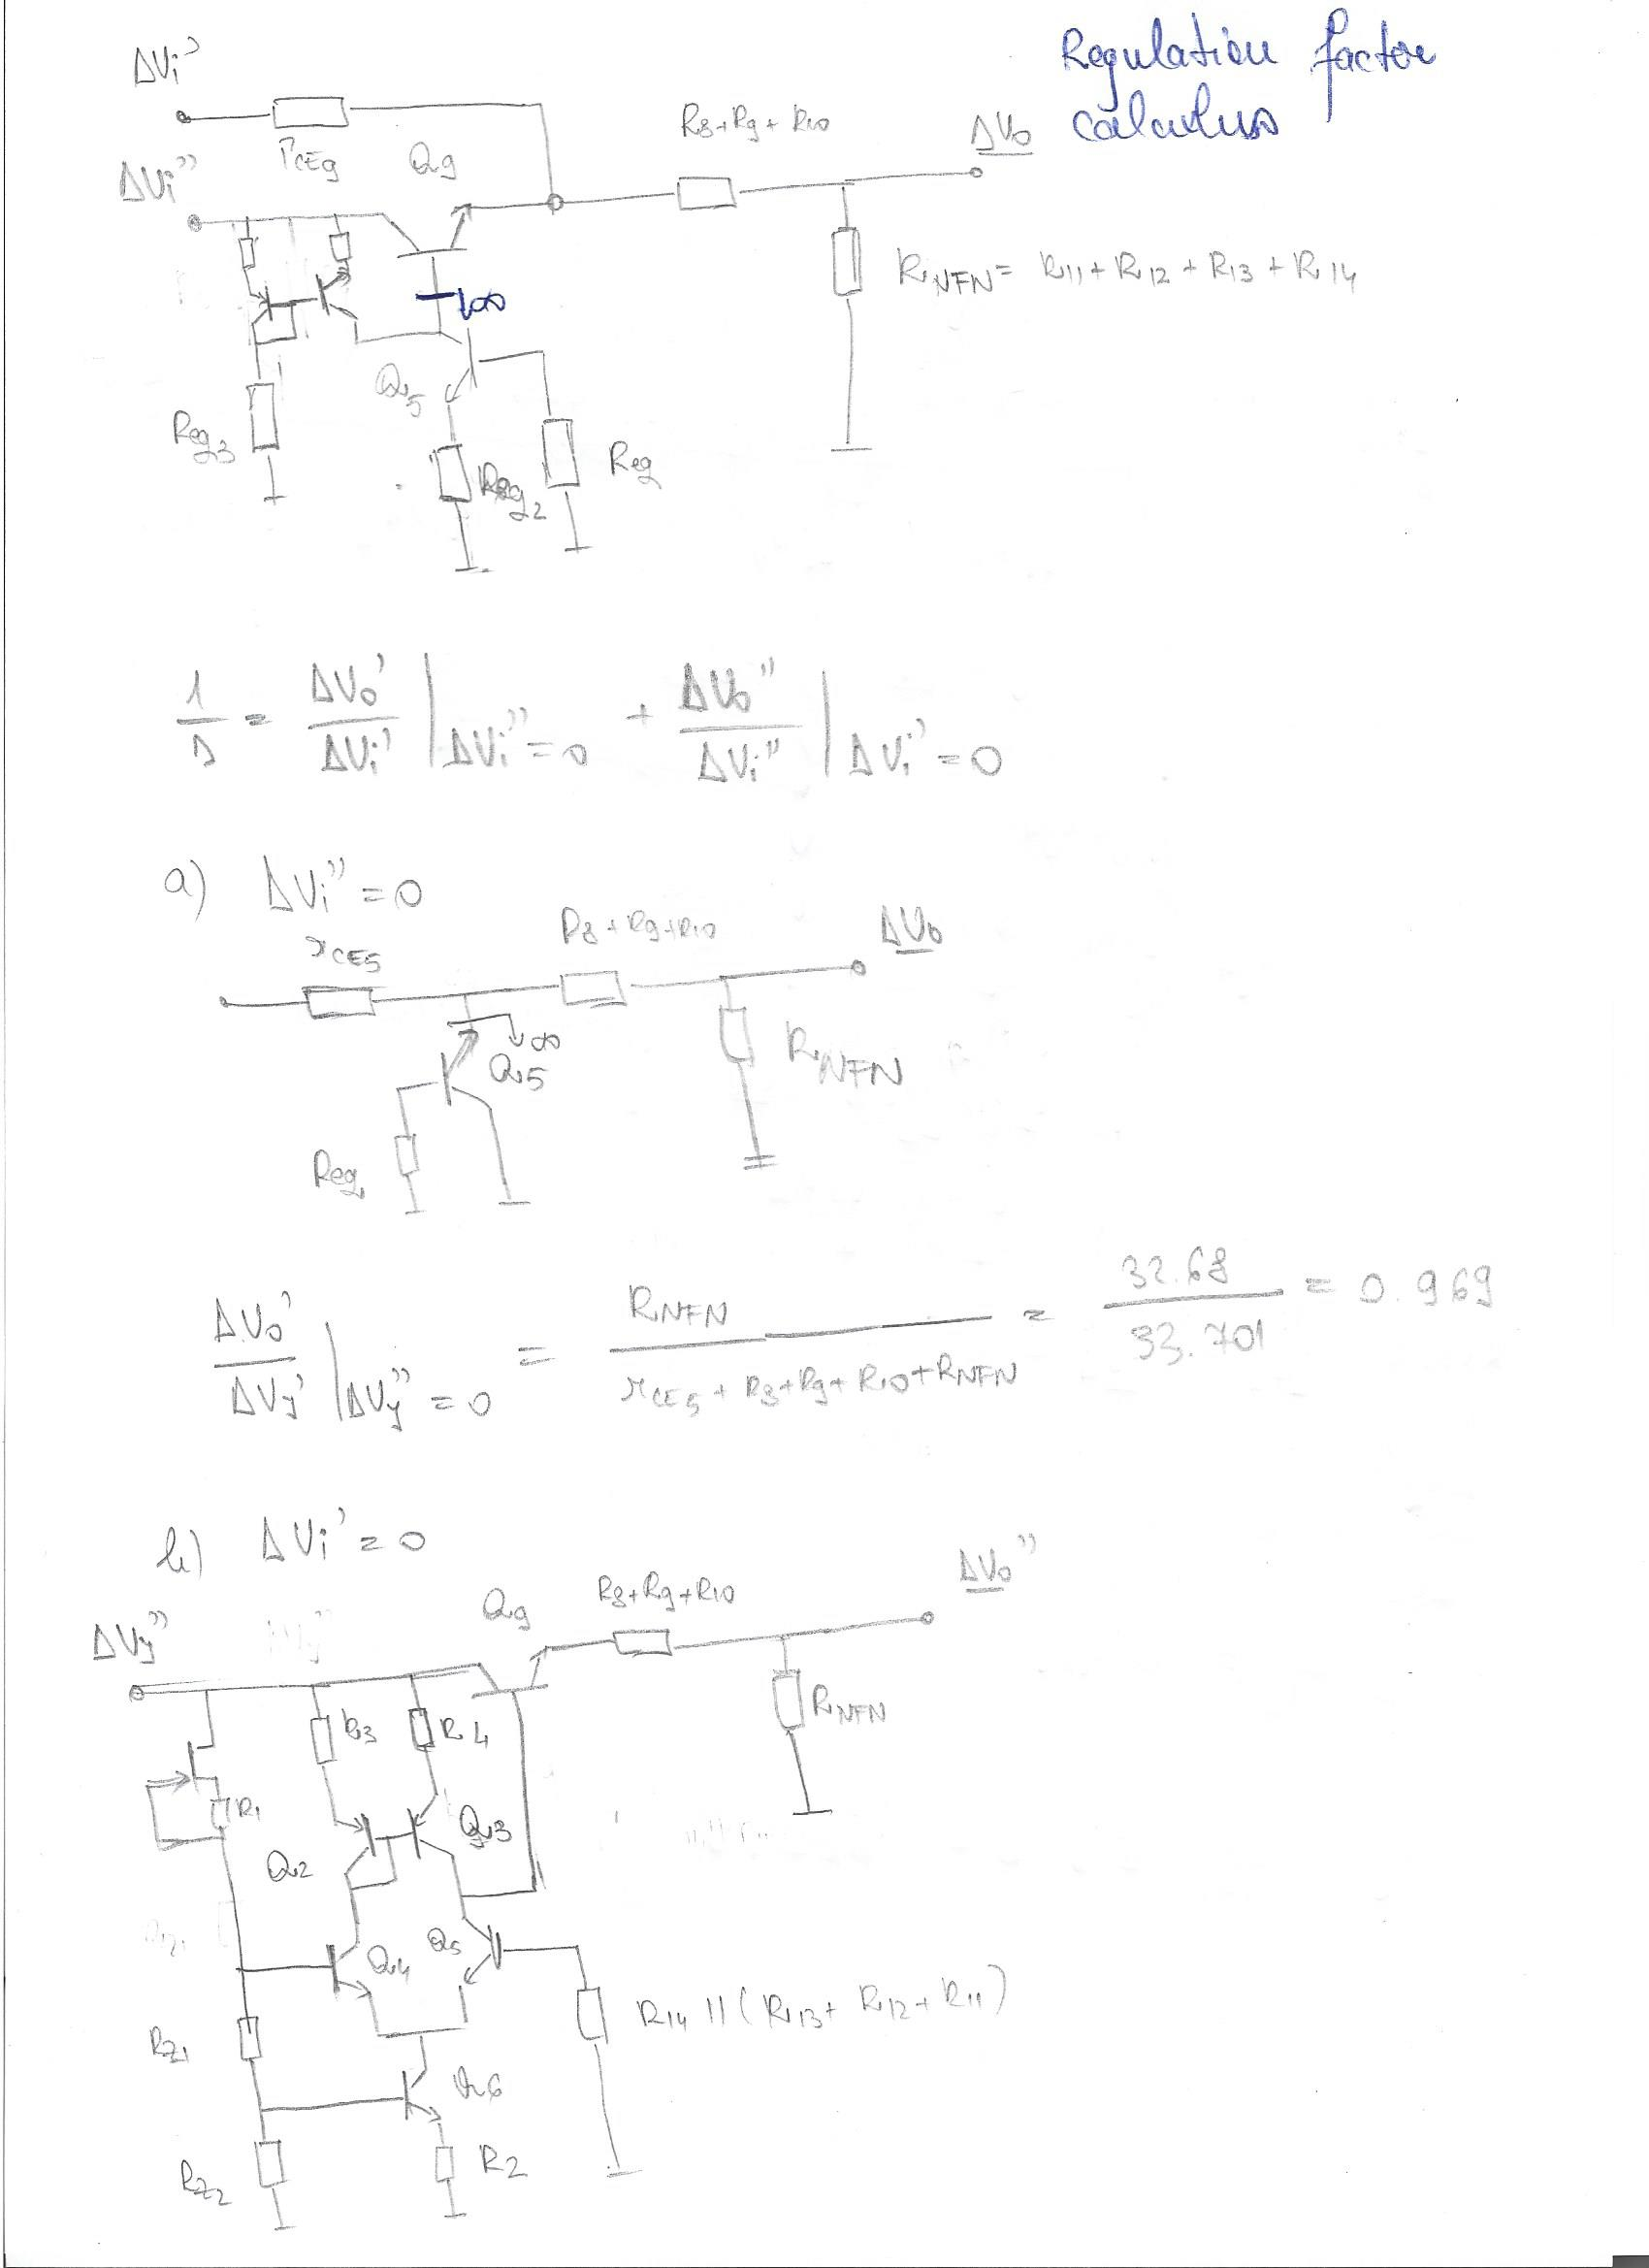 Regulation factor
calculus
ΔVi'
rCEg
ΔVi''
Qg
R8+Rg+R10
ΔVo
RNFN = R11+R12+R13+R14
∞
Q5
Reg3
Reg2
Reg
1/S = ΔVo'/ΔVi' | ΔVi''=0 + ΔVo''/ΔVi'' | ΔVi'=0
a) ΔVi''=0
rCE5
R8+Rg+R10
ΔVo
∞
Q5
RNFN
Reg1
ΔVo'/ΔVy' | ΔVy''=0 = RNFN/(rCE5+R8+Rg+R10+RNFN) = 32.68/33.701 = 0.969
b) ΔVi'=0
ΔVy''
Qg
R8+Rg+R10
ΔVo''
R3
R4
RNFN
R1
Q2
Q3
Q4
Q5
R14 || (R13+R12+R11)
Rz1
Q6
Rz2
R2